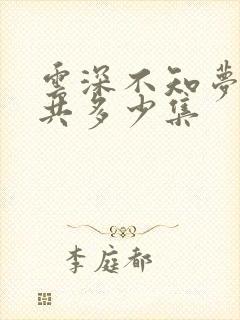 雲深不知夢
共多少集
李庭都